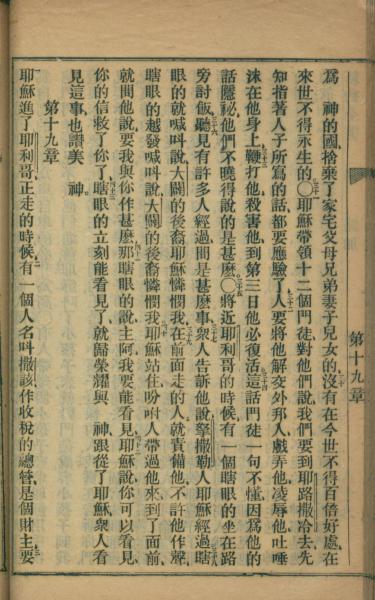 第十九章
爲　神的國捨棄了家宅父母兄弟妻子兒女的沒有在今世不得百倍好處在
來世不得永生的○耶穌帶領十二個門徒對他們說我們要到耶路撒冷去先
知指著人子所寫的話都要應驗了人要將他解交外邦人戲弄他凌辱他吐唾
沫在他身上鞭打他殺害他到第三日他必復活這話門徒一句不懂因爲他的
話隱祕他們不曉得說的是甚麼○將近耶利哥的時候有一個瞎眼的坐在路
旁討飯聽見有許多人經過問是甚麼事衆人告訴他說拏撒勒人耶穌經過瞎
眼的就喊叫說大闢的後裔耶穌憐憫我在前面走的人就責備他不許他作聲
瞎眼的越發喊叫說大闢的後裔憐憫我耶穌站住吩咐人帶過他來到了面前
就問他說要我與你作甚麼那瞎眼的說主阿我要能看見耶穌說你可以看見
你的信救了你了瞎眼的立刻能看見了就歸榮耀與　神跟從了耶穌衆人看
見這事也讚美　神
第十九章
耶穌進了耶利哥正走的時候有一個人名叫撒該作收稅的總管是個財主要